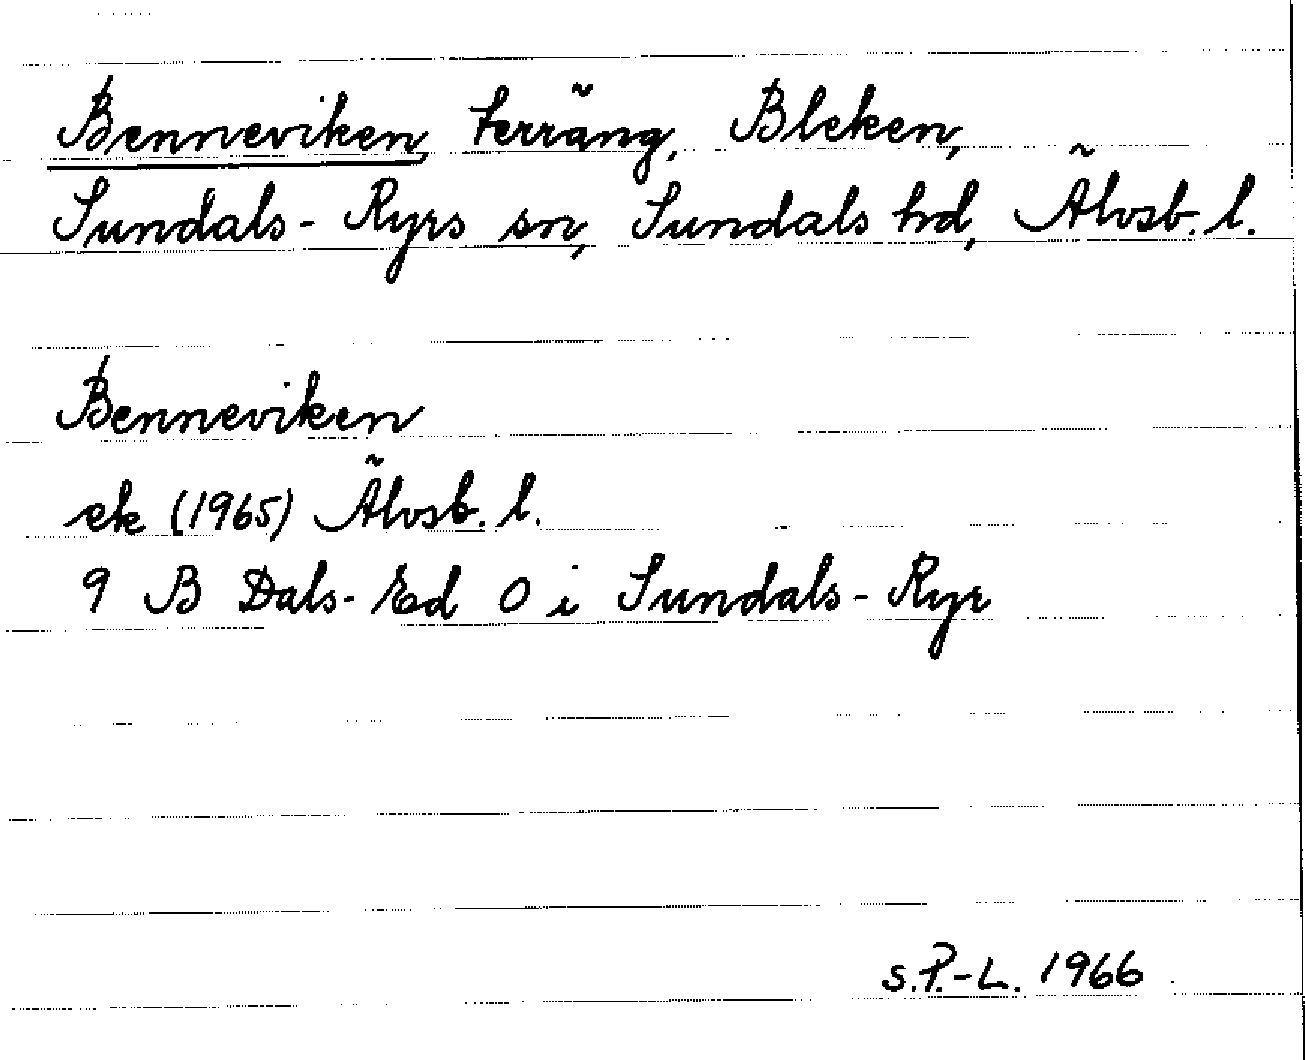 Benneviken, terräng, Bleken,
Sundals-Ryrs sn, Sundals hd, Älvsb. l.
Benneviken
ek (1965) Älvsb. l.
9 B Dals-Ed O i Sundals-Ryr
S.P.-L. 1966